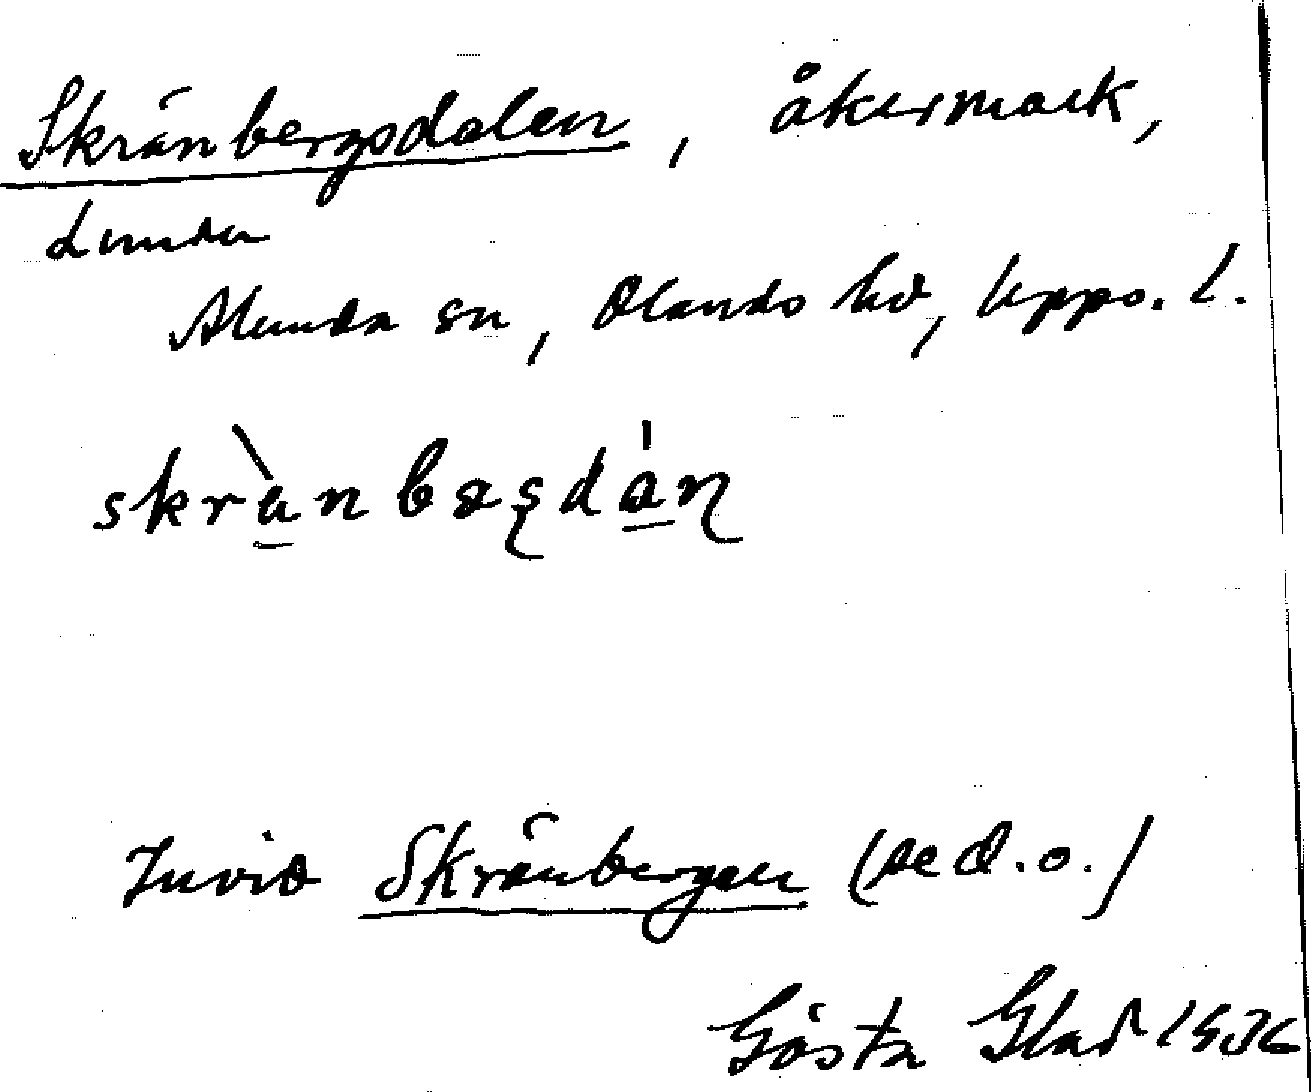 Skränbergsdalen, åkermark,
Lunda
Alunda sn, Olands hd, Upps. l.
skrànbęsdán
Invid Skränbergen (se d.o.)
Gösta Glad 1936